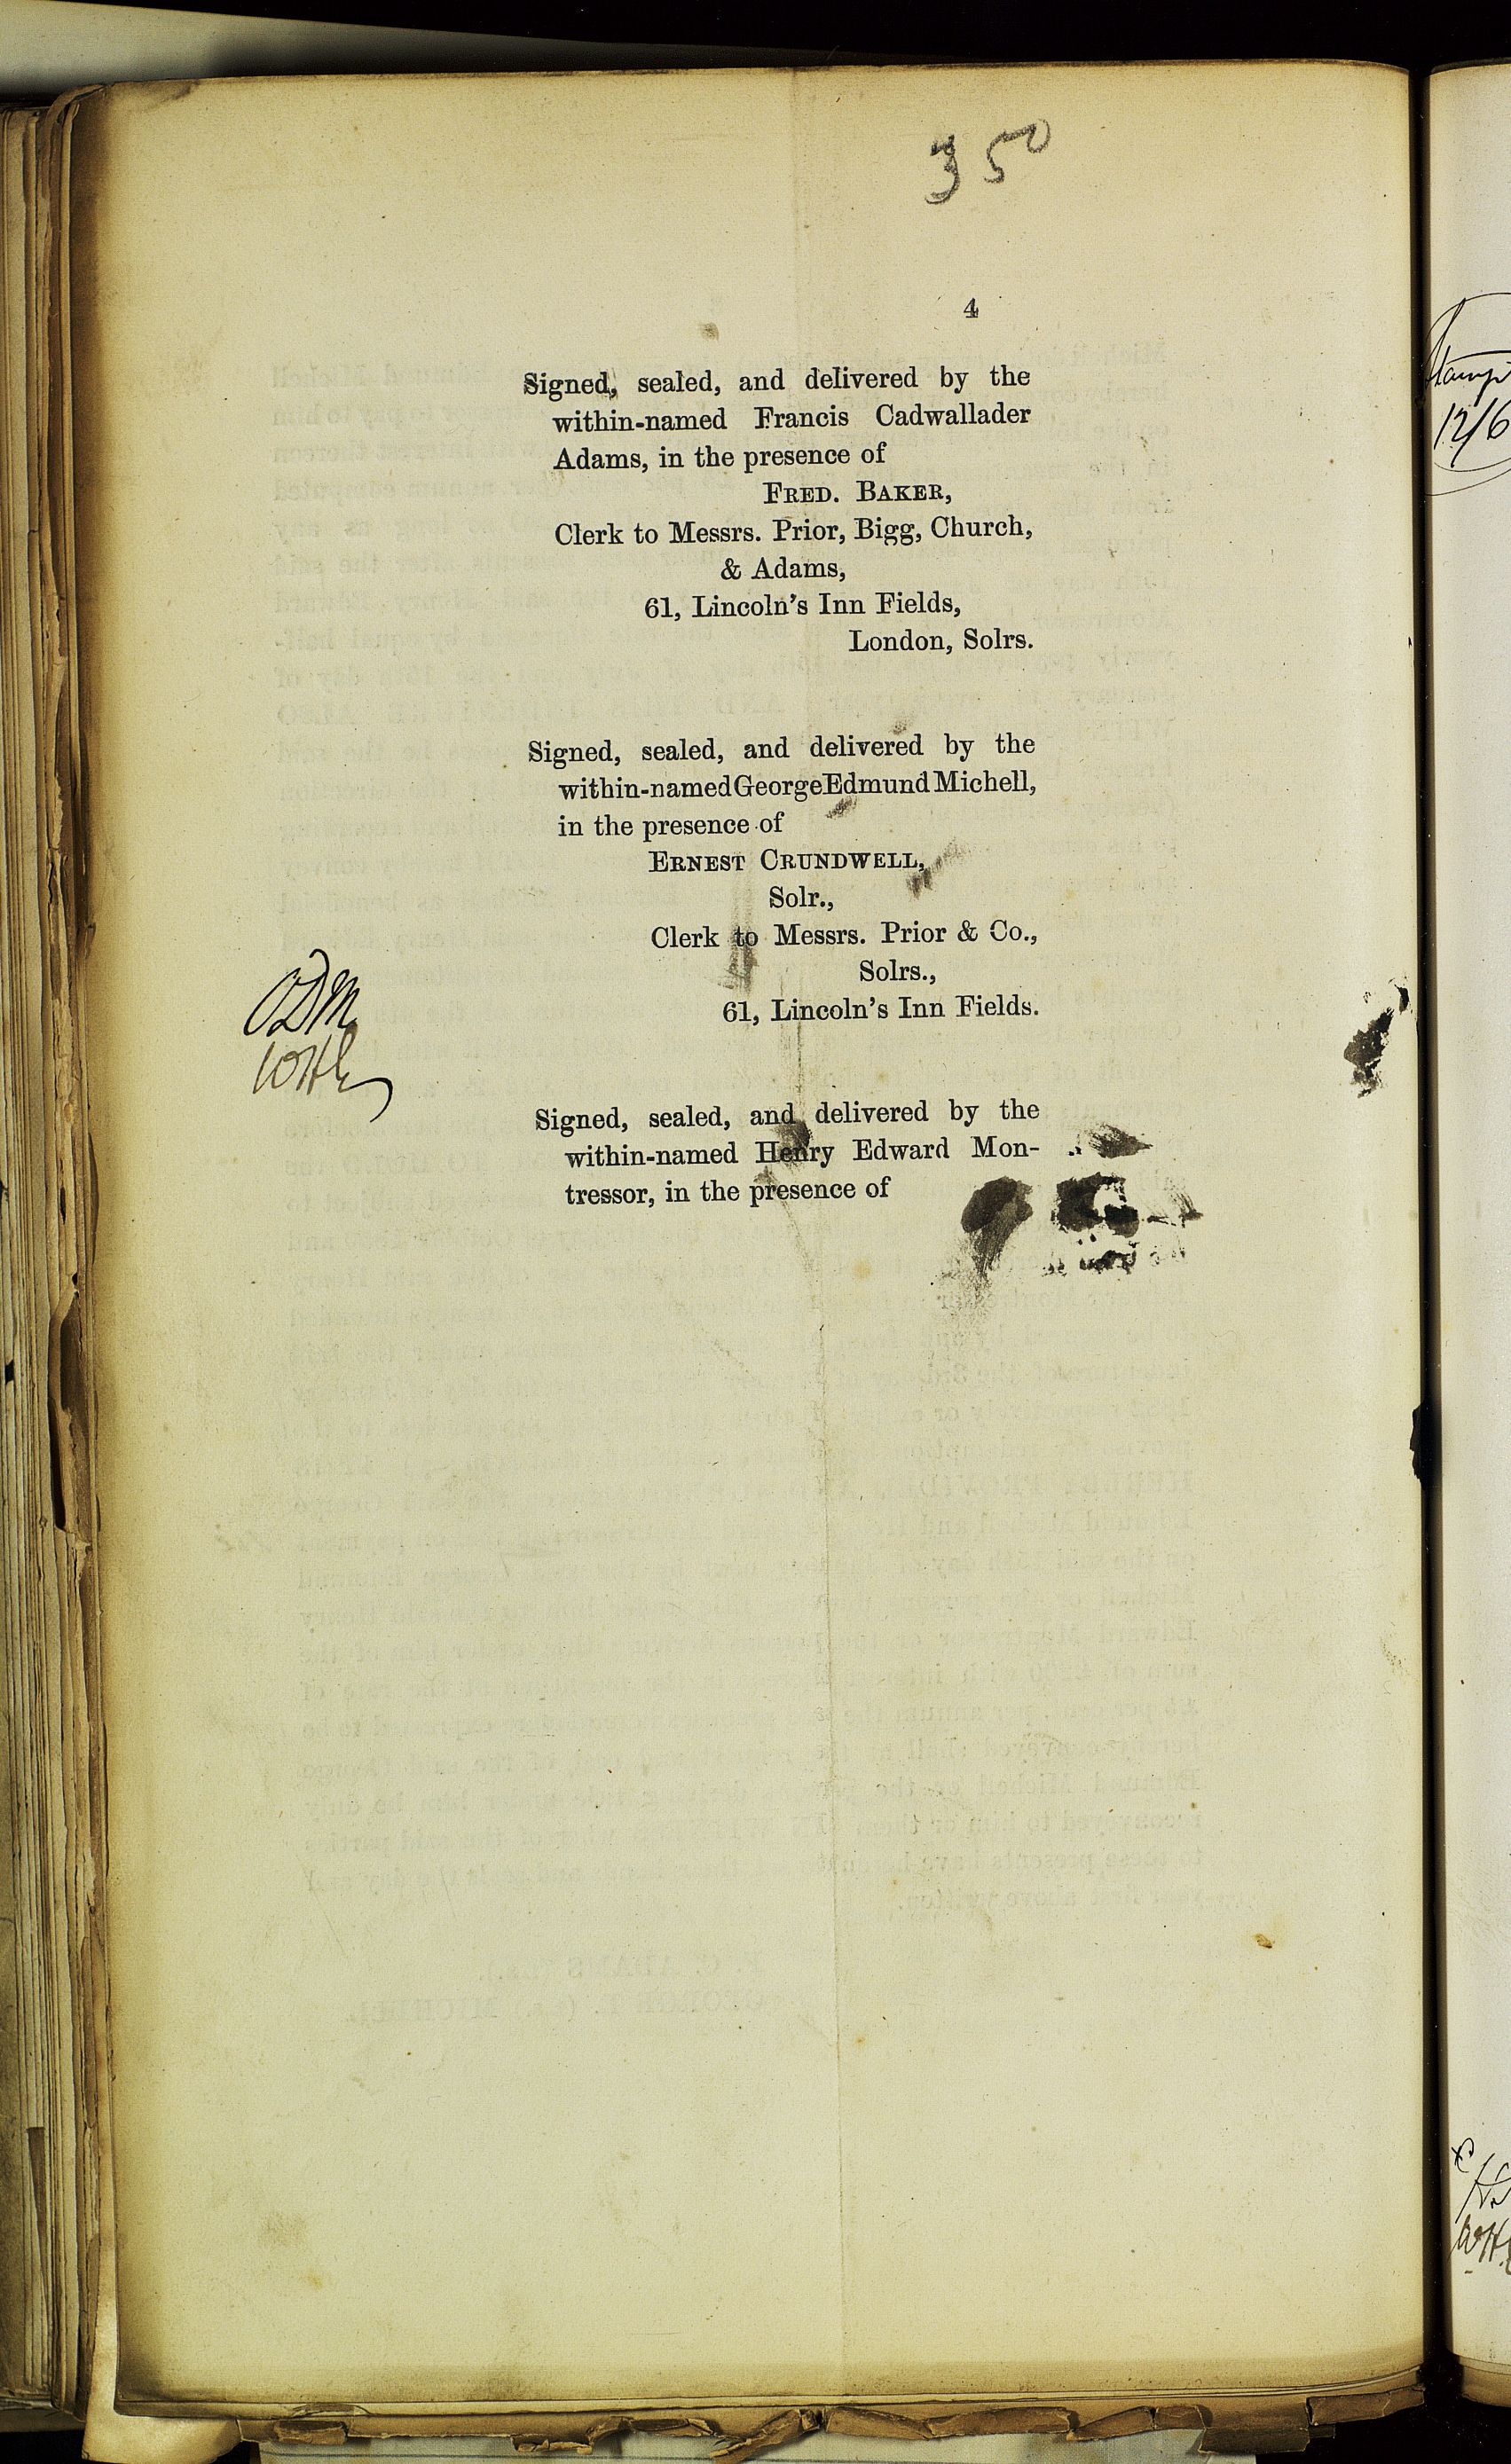 350
4
Signed, sealed, and delivered by the
within-named Francis Cadwallader
Adams, in the presence of
FRED. BAKER,
Clerk to Messrs. Prior, Bigg, Church,
& Adams,
61, Lincoln's Inn Fields,
London, Solrs.
Signed, sealed, and delivered by the
within-named George Edmund Michell,
in the presence of
ERNEST CRUNDWELL,
Solr.,
Clerk to Messrs. Prior & Co.,
Solrs.,
61, Lincoln's Inn Fields.
ODM
Signed, sealed, and delivered by the
within-named Henry Edward Mon-
tressor, in the presence of
Stamp
12/6